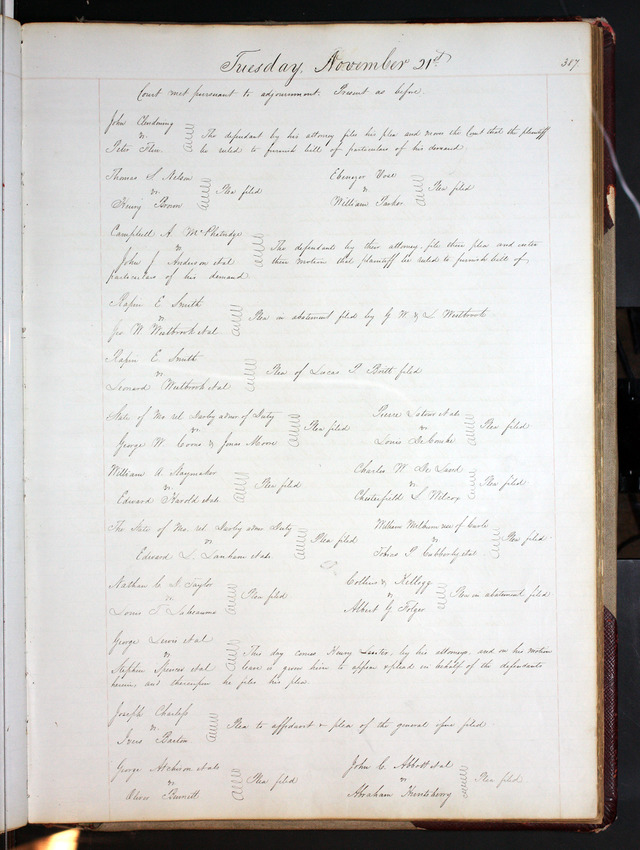 Tuesday, November 21st.
387
Court met pursuant to adjournment. Present as before.
John Clendening
vs.
Peter Flinn
The defendant by his attorney files his plea and moves the Court that the plaintiff
be ruled to furnish bill of particulars of his demand
Thomas S. Nelson
vs
Henry Brown
Plea filed
Ebenezer
vs
William Parker
Plea filed
Campbell A. McPhatridge
vs
John J. Anderson et al
The defendants by their attorney, file their plea and enter
their motion that plaintiff be ruled to furnish bill of
particulars of his demand
E. Smith
vs
Geo W Westbrook et al
Plea in abatement filed by G W & L. Westbrook
E. Smith
vs.
Leonard Westbrook et al
Plea of Lucas P. filed
State of Mo. rel admr of
vs.
George W. & Jonas Moore
Plea filed
Pierre et al
vs
Louis
Plea filed
William A. Slaymaker
vs
Edward Harold et al
Plea filed
Charles W.
vs.
Chesterfield S. Wilcox
Plea filed
The State of Mo. rel admr
vs
Edward L. Lanham et al
Plea filed
William use of
vs
Tobias P Cubberly et al
Plea filed
Nathan C. D. Taylor
vs.
Louis T. Labeaume
Plea filed
Collins & Kellogg
vs
Albert G Folger
Plea in abatement filed
George Lewis et al
vs
Stephen Spencer et al
This day comes Henry by his attorneys, and on his motion
leave is given him to appear & plead in behalf of the defendants
herein, and thereupon he files his plea
Joseph Charless
vs
Barton
Plea to affidavit & plea of the general issue filed
George Atchison et al
vs
Oliver Burnett
Plea filed
John C. Abbott et al
vs
Abraham
Plea filed